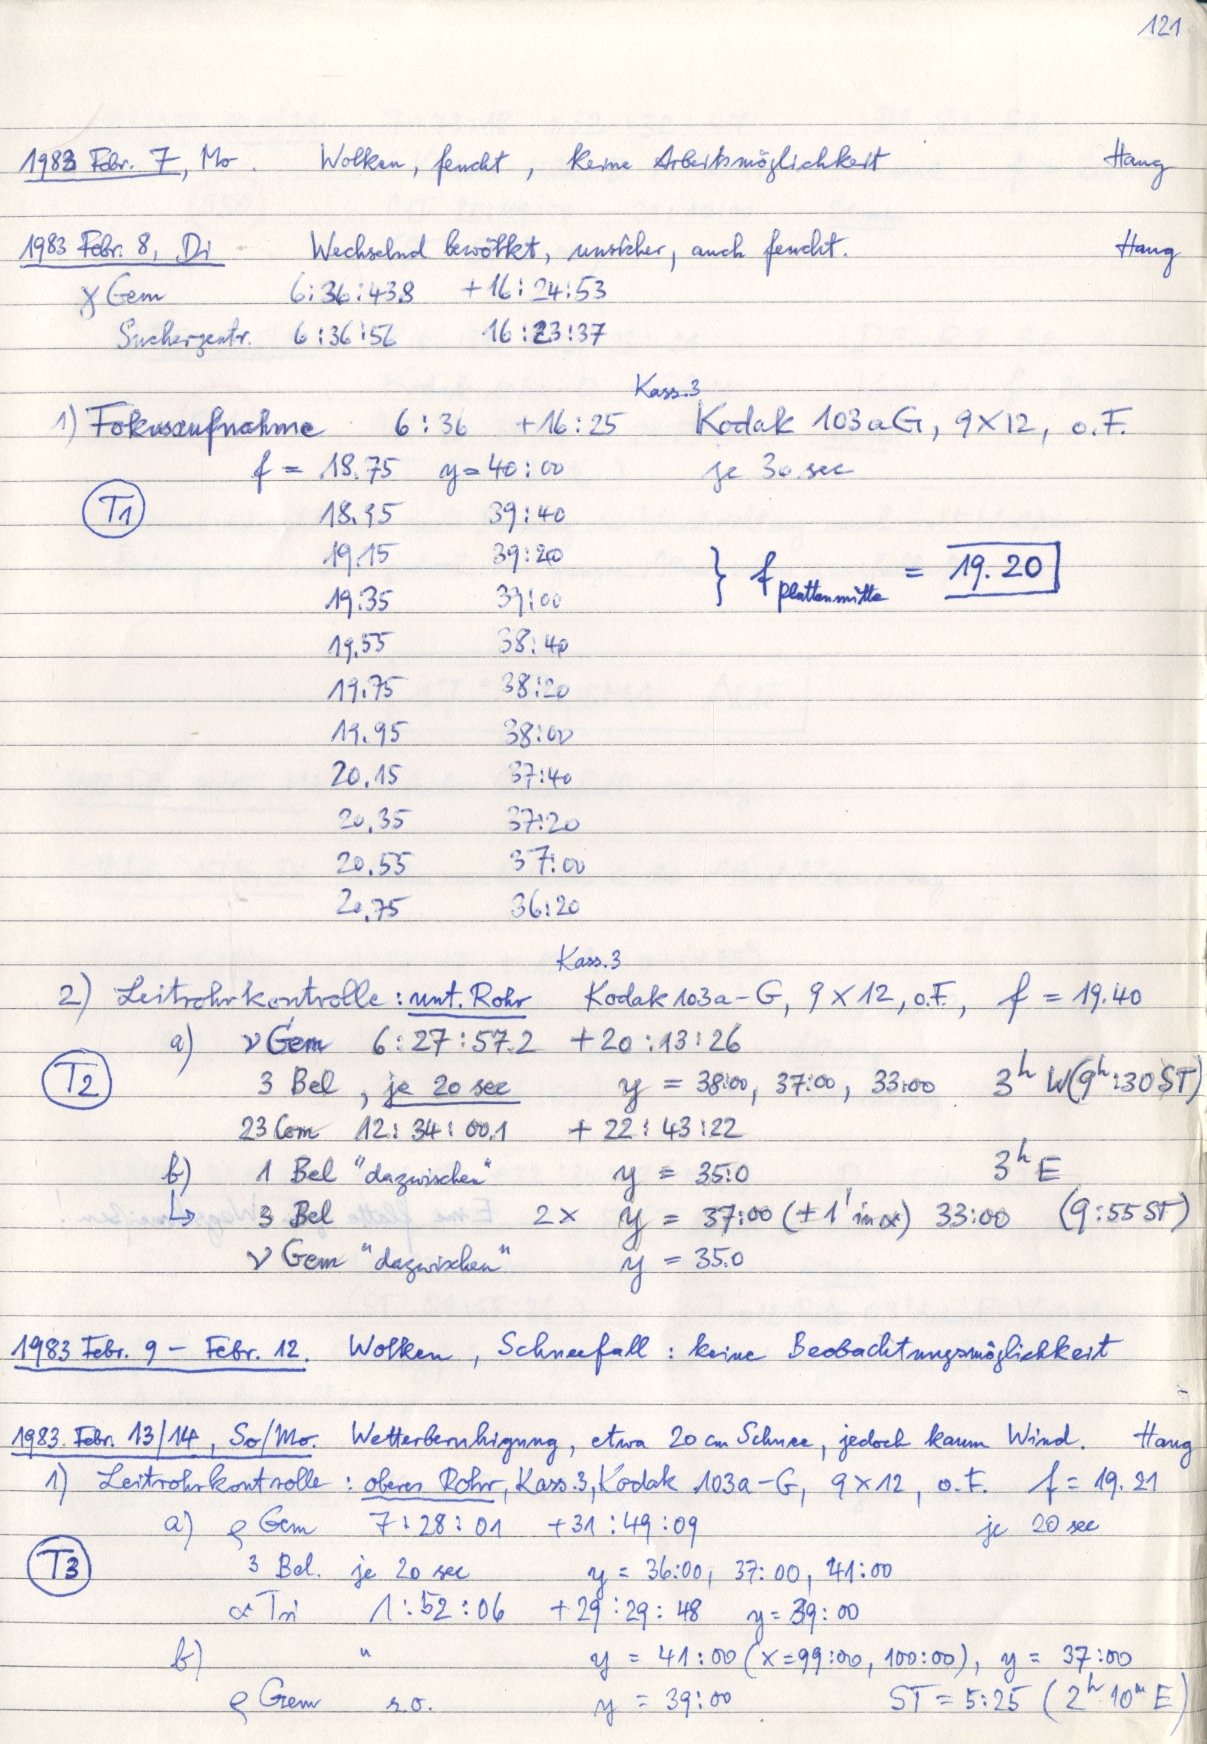 121
1983 Febr. 7, Mo. Wolken, feucht, keine Arbeitsmöglichkeit Haug
1983 Febr. 8, Di Wechselnd bewölkt, unsicher, auch feucht. Haug
γ Gem 6:36:43.8 +16:24:53
Sucherzentr. 6:36:56 16:23:37
Kass.3
1) Fokusaufnahme 6:36 +16:25 Kodak 103aG, 9×12, o.F.
f = 18.75 y = 40:00 je 30 sec
T1 18.95 39:40
19.15 39:20
} f Plattenmitte = 19.20
19.35 39:00
19.55 38:40
19.75 38:20
19.95 38:00
20.15 37:40
20.35 37:20
20.55 37:00
20.75 36:20
Kass.3
2) Leitrohrkontrolle: unt. Rohr Kodak 103a-G, 9×12, o.F., f = 19.40
a) ν Gem 6:27:57.2 +20:13:26
T2 3 Bel, je 20 sec y = 38:00, 37:00, 33:00 3h W (9h:30 ST)
23 Com 12:34:00.1 +22:43:22
b) 1 Bel "dazwischen" y = 35.0 3h E
↳ 3 Bel 2× y = 37:00 (±1' in α) 33:00 (9:55 ST)
ν Gem "dazwischen" y = 35.0
1983 Febr. 9 – Febr. 12. Wolken, Schneefall: keine Beobachtungsmöglichkeit
1983 Febr. 13/14, So/Mo. Wetterberuhigung, etwa 20 cm Schnee, jedoch kaum Wind. Haug
1) Leitrohrkontrolle: oberes Rohr, Kass.3, Kodak 103a-G, 9×12, o.F. f = 19.21
a) ρ Gem 7:28:01 +31:49:09 je 20 sec
T3 3 Bel. je 20 sec y = 36:00, 37:00, 41:00
α Tri 1:52:06 +29:29:48 y = 39:00
b) " y = 41:00 (x=99:00, 100:00), y = 37:00
ρ Gem s.o. y = 39:00 ST = 5:25 (2h 10m E)